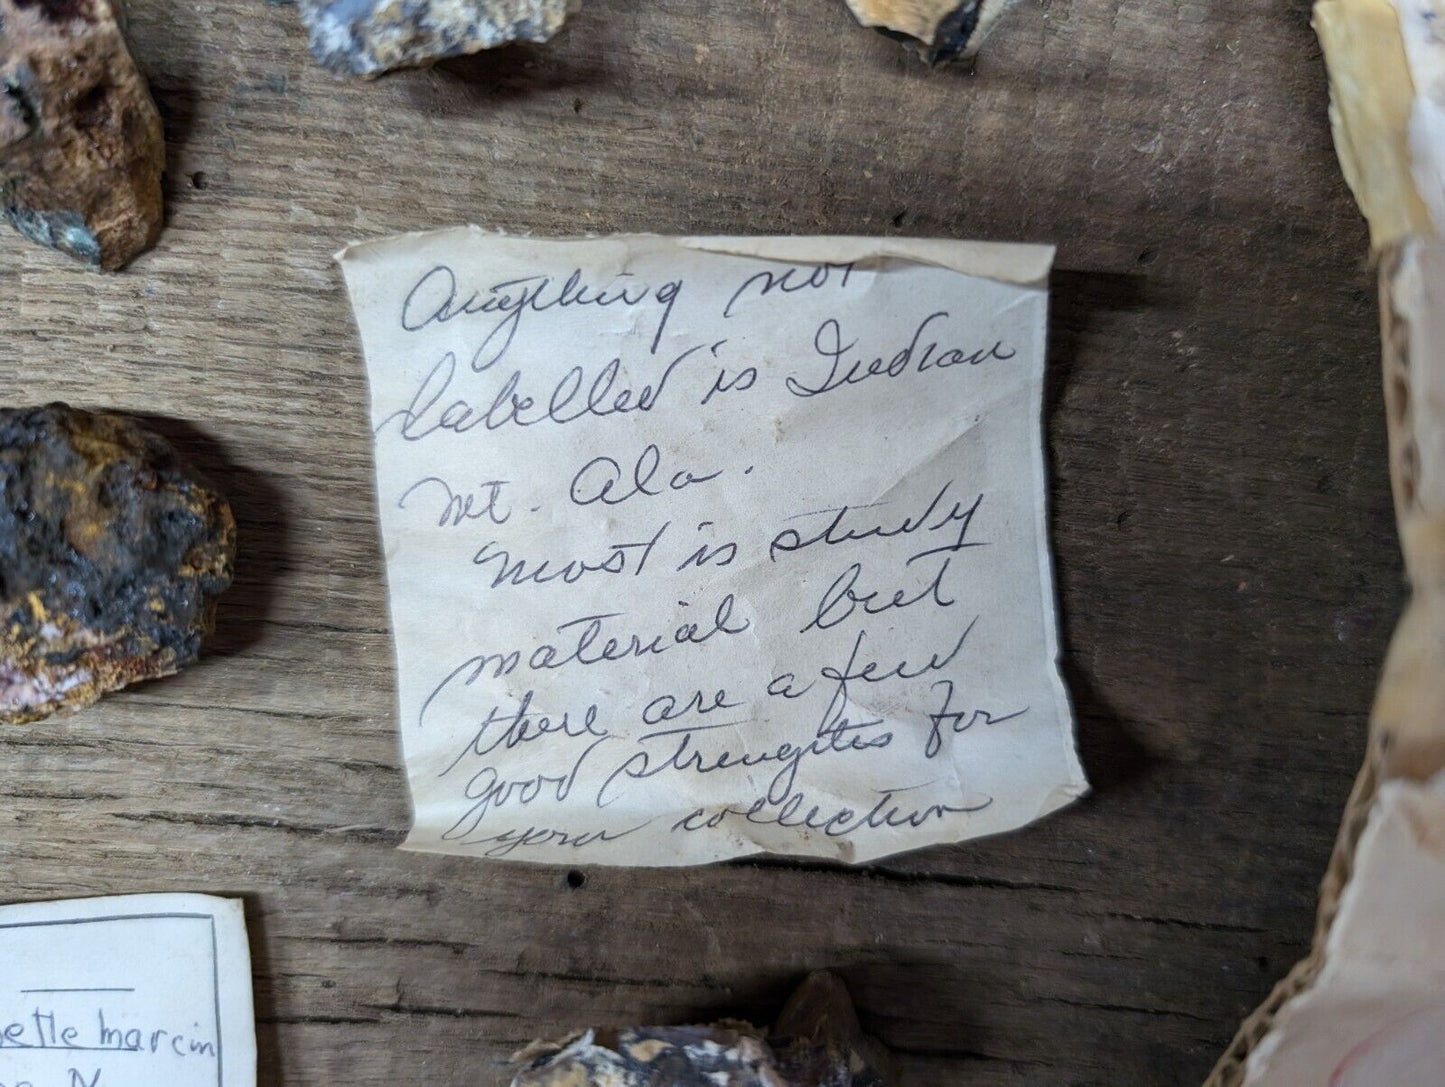 Anything not
labelled is Indian
mt. Ala.
most is study
material but
there are a few
good strengites for
your collection
marcin